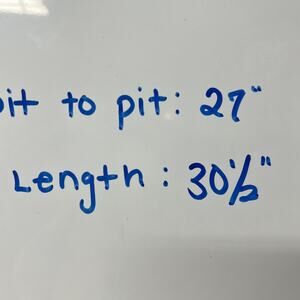 pit to pit: 27"
Length: 30 1/2"